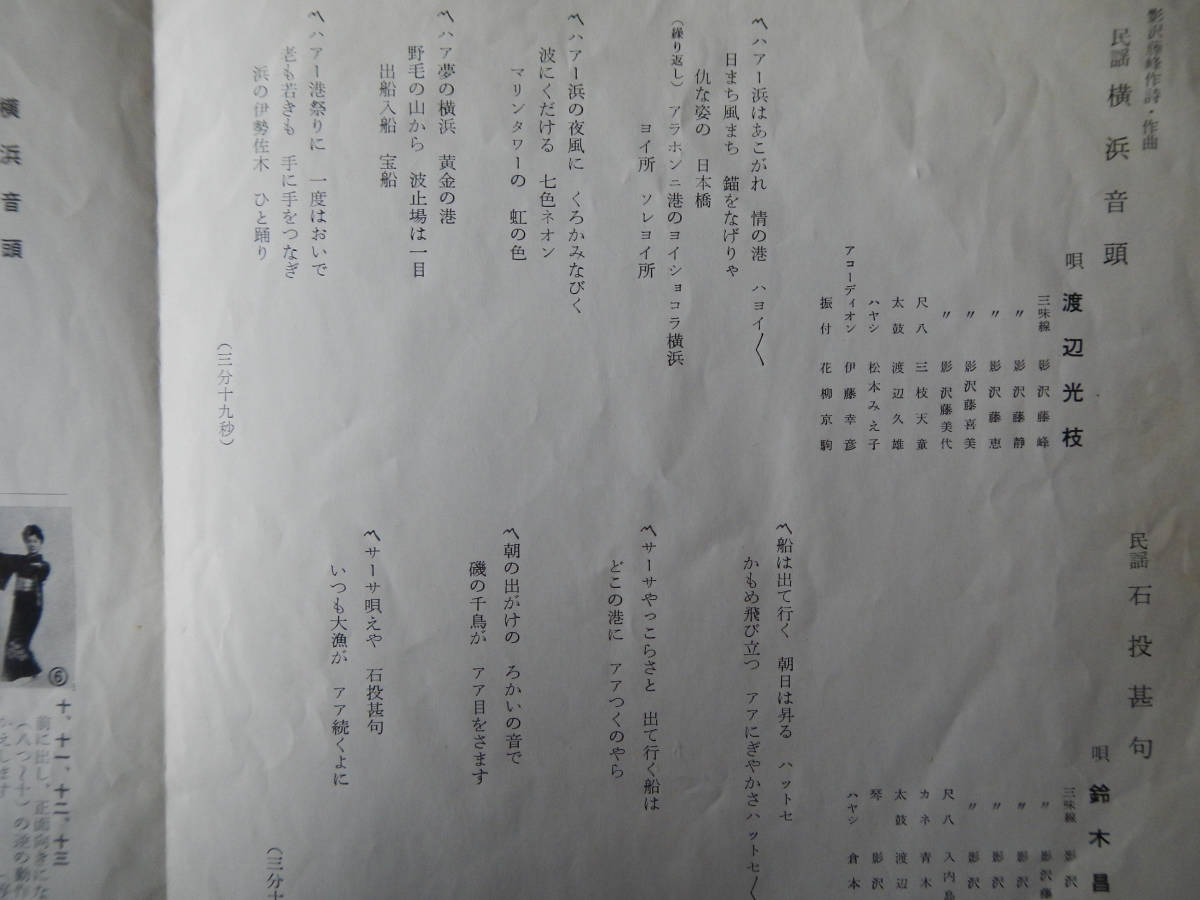 影沢藤峰作詩・作曲
民謡 横浜音頭
唄 渡辺光枝
三味線 影沢藤峰
〃 影沢藤静
〃 影沢藤恵
〃 影沢藤喜美
〃 影沢藤美代
尺八 三枝天童
太鼓 渡辺久雄
ハヤシ 松木みえ子
アコーディオン 伊藤幸彦
振付 花柳京駒
〽ハアー浜はあこがれ 情の港 ハヨイ〱
日まち風まち 錨をなげりゃ
仇な姿の 日本橋
(繰り返し) アラホンニ港のヨイショコラ横浜
ヨイ所 ソレヨイ所
〽ハアー浜の夜風に くろかみなびく
波にくだける 七色ネオン
マリンタワーの 虹の色
〽ハア夢の横浜 黄金の港
野毛の山から 波止場は一目
出船入船 宝船
〽ハアー港祭りに 一度はおいで
老も若きも 手に手をつなぎ
浜の伊勢佐木 ひと踊り
(三分十九秒)
民謡 石投甚句
唄 鈴木昌
三味線 影沢
〃 影沢藤
〃 影沢
〃 影沢
〃 影沢
尺八 入内島
カネ 青木
太鼓 渡辺
琴 影沢
ハヤシ 倉本
〽船は出て行く 朝日は昇る ハットセ
かもめ飛び立つ アアにぎやかさハットセ〱
〽サーサやっこらさと 出て行く船は
どこの港に アアつくのやら
〽朝の出がけの ろかいの音で
磯の千鳥が アア目をさます
〽サーサ唄えや 石投甚句
いつも大漁が アア続くよに
(三分十
横浜音頭
⑥
十、十一、十二、十三
前に出し、正面向きにな
(八つ〜十)の逆の動作
かえします